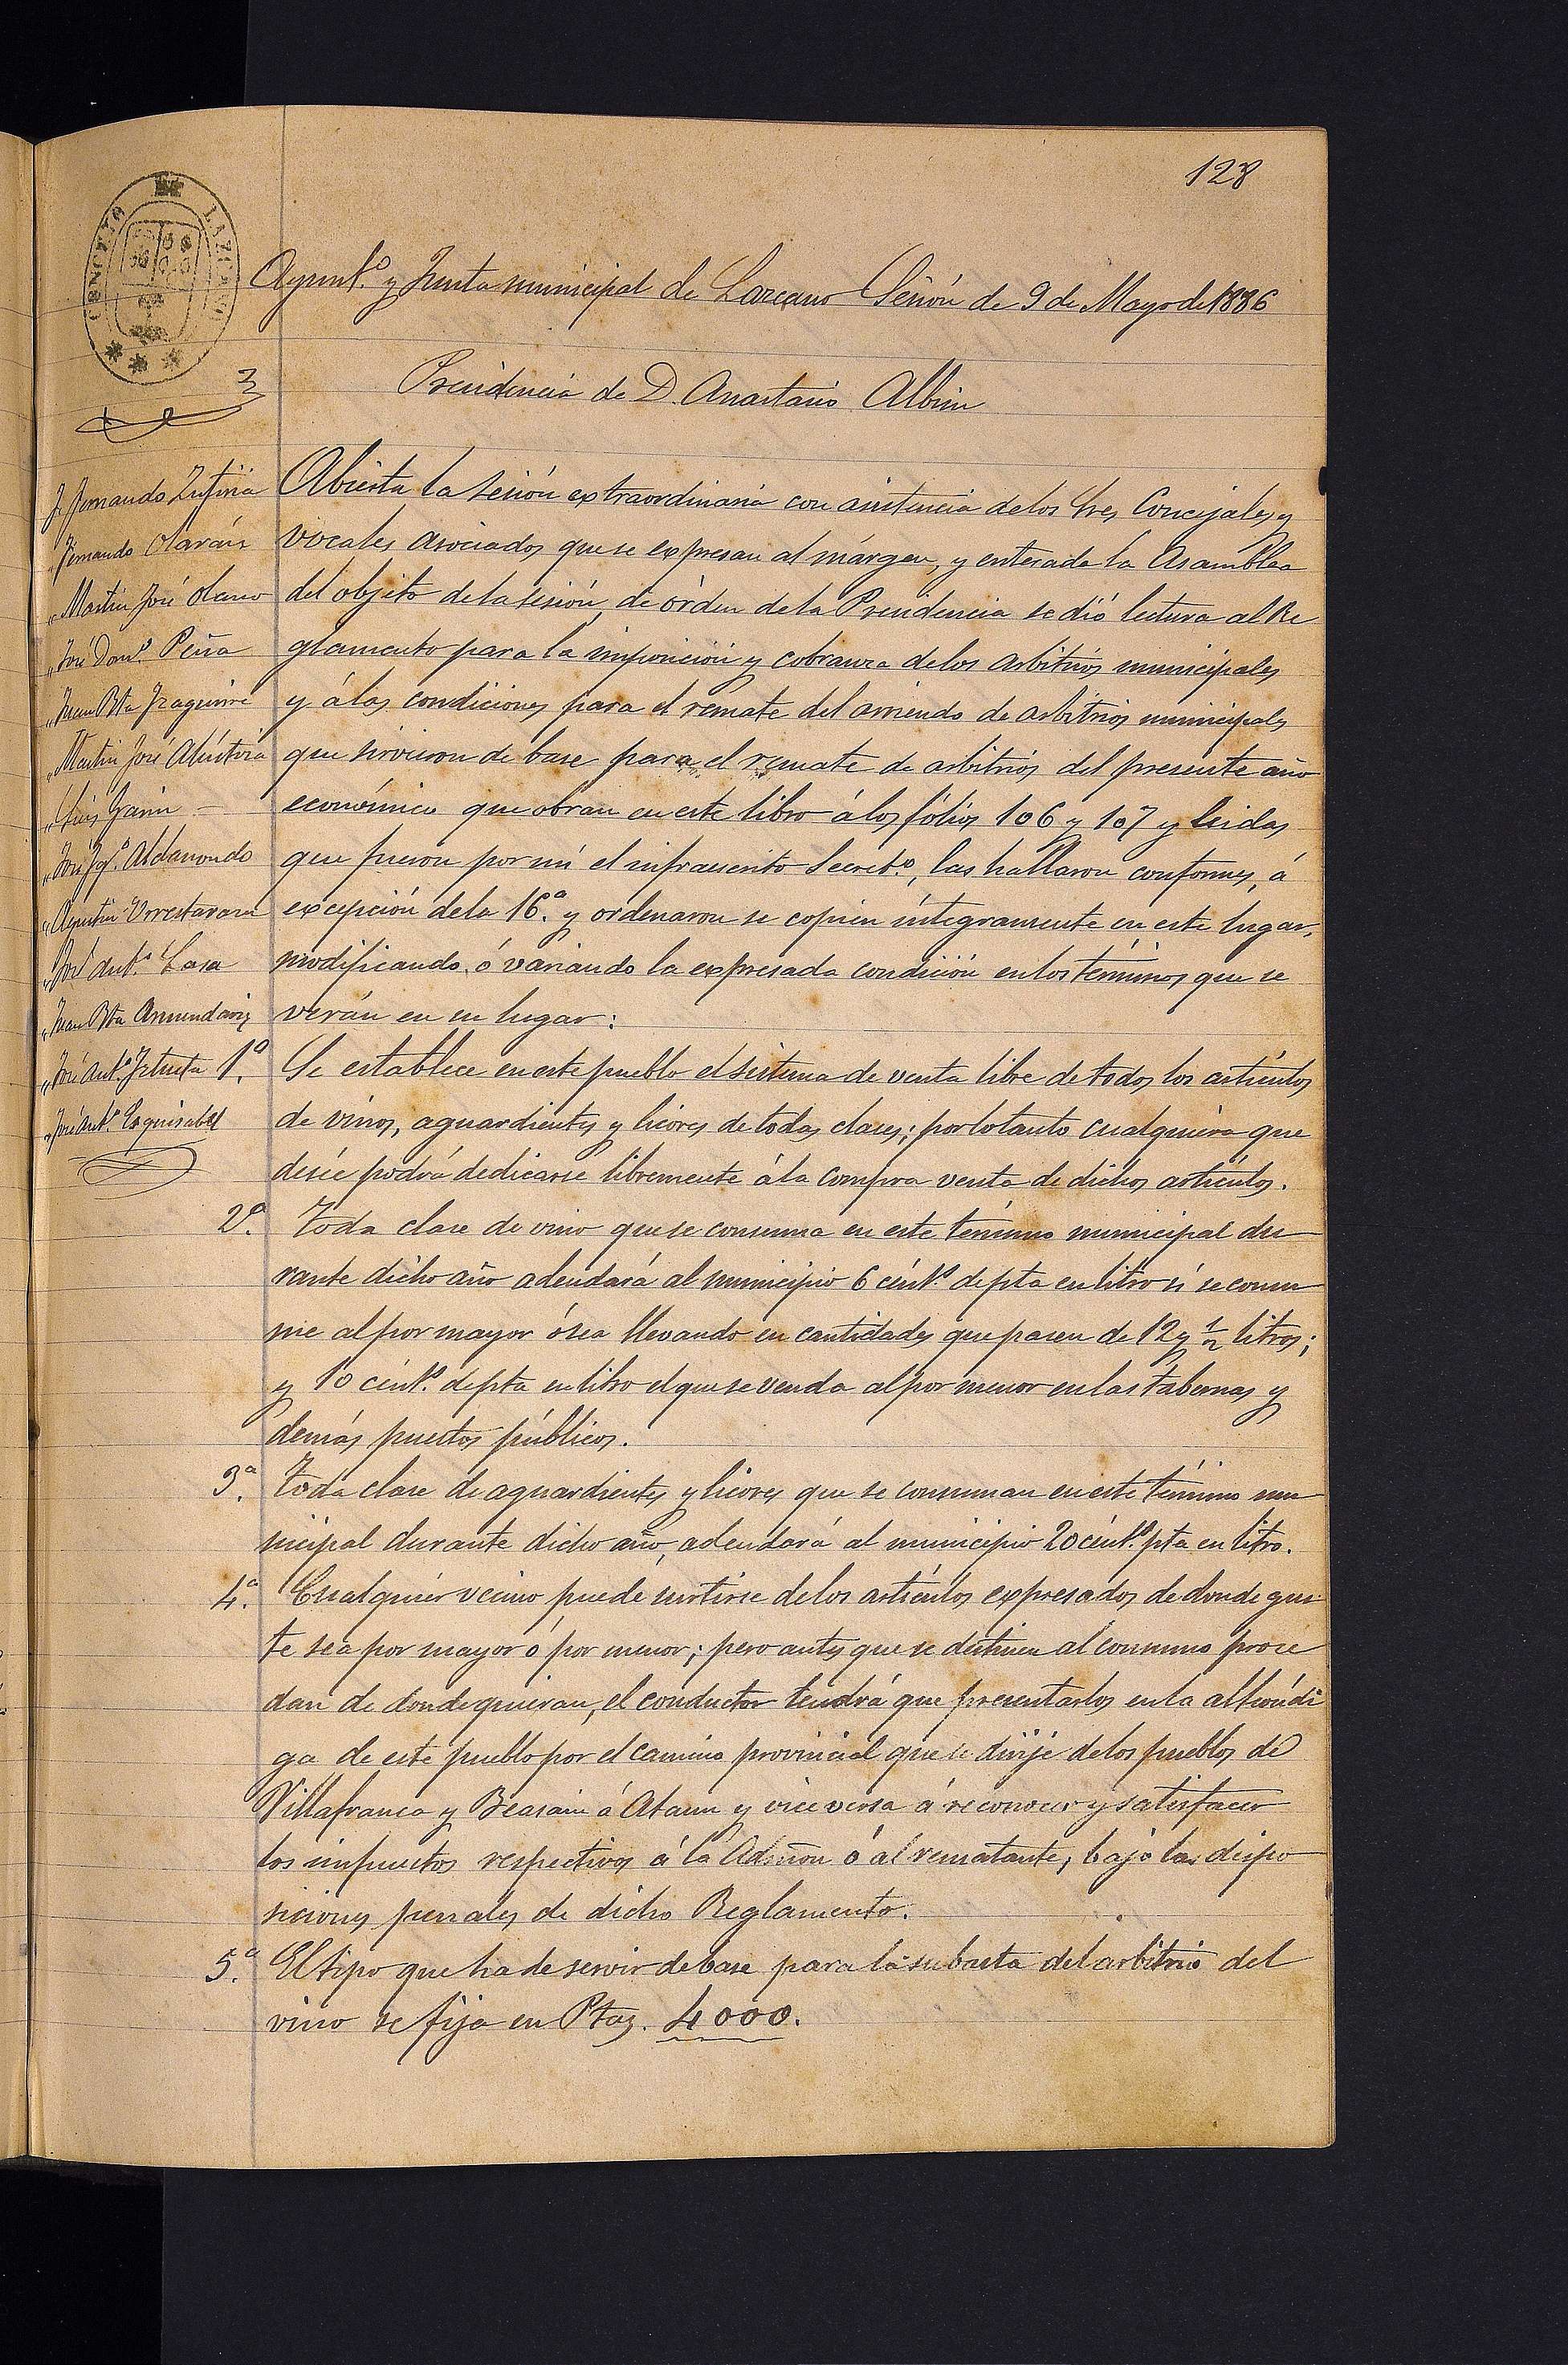 128
Ayunt.º y Junta municipal de Lazcano Sesión de 9 de Mayo de 1886
Presidencia de D. Anastasio Albisu
J. Fernando Zufiria
" Fernando Olaráns
" Martin José Olano
" José Dom.º Peña
" Juan Bta Izaguirre
" Martin José Aldustria
" Luis Garin
" José Jqⁿ. Aldanondo
" Agustin Urrestarazu
" José Ant.º Lasa
" Juan Bta Armendariz
" José Ant.º Iztueta
" José Ant.º Esquisabel
Abierta la sesión extraordinaria con asistencia de los Sres Concejales y
vocales asociados que se expresan al márgen, y enterada la Asamblea
del objeto de la sesión, de órden de la Presidencia se dió lectura al Re
glamento para la imposición y cobranza de los arbitrios municipales
y á las condiciones para el rémate del arriendo de arbitrios municipales
que sirvieron de base para el remate de arbitrios del presente año
económico que obran en este libro á los fólios 106 y 107 y leidas
que fueron por mí el infraescrito Secret.º, las hallaron conformes, á
excepción de la 16.ª y ordenaron se copien íntegramente en este lugar,
modificando ó variando la expresada condición en los términos que se
verán en su lugar:
1.ª Se establece en este pueblo el sistema de venta libre de todos los artículos
de vinos, aguardientes y licores de todas clases; por lo tanto cualquiera que
desée podrá dedicarse libremente á la compra venta de dichos artículos.
2.ª Toda clase de vino que se consuma en este término municipal du
rante dicho año adeudará al municipio 6 cént.s de pta en litro si se consu
me al por mayor ó sea llevando en cantidades que pasen de 12 y ½ litros;
y 10 cént.s de pta en litro el que se venda al por menor en las tabernas y
demás puestos públicos.
3.ª Toda clase de aguardientes y licores que se consuman en este término mu
nicipal durante dicho año, adeudará al municipio 20 cént.s pta en litro.
4.ª Cualquier vecino puede surtirse de los artículos expresados de donde gus
te sea por mayor ó por menor; pero antes que se destinen al consumo proce
dan de donde quieran, el conductor tendrá que presentarlos en la alhóndi
ga de este pueblo por el camino provincial que se dirije de los pueblos de
Villafranca y Beasain á Ataun y vice versa á reconocer y satisfacer
los impuestos respectivos á la Admon ó al rematante, bajo las dispo
siciones penales de dicho Reglamento.
5.ª El tipo que ha de servir de base para la subasta del arbitrio del
vino se fija en Ptas. 4000.